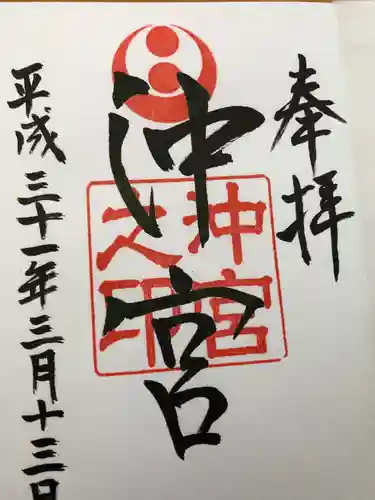 奉拝
沖宮
沖宮之印
平成三十一年三月十三日